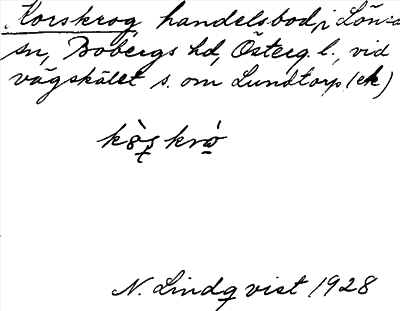 Korskrog, handelsbod, i Lönsås
sn, Bobergs hd, Österg. l., vid
vägskälet s. om Lundtorp (ek)
kòs̱ kró̱
N. Lindqvist 1928